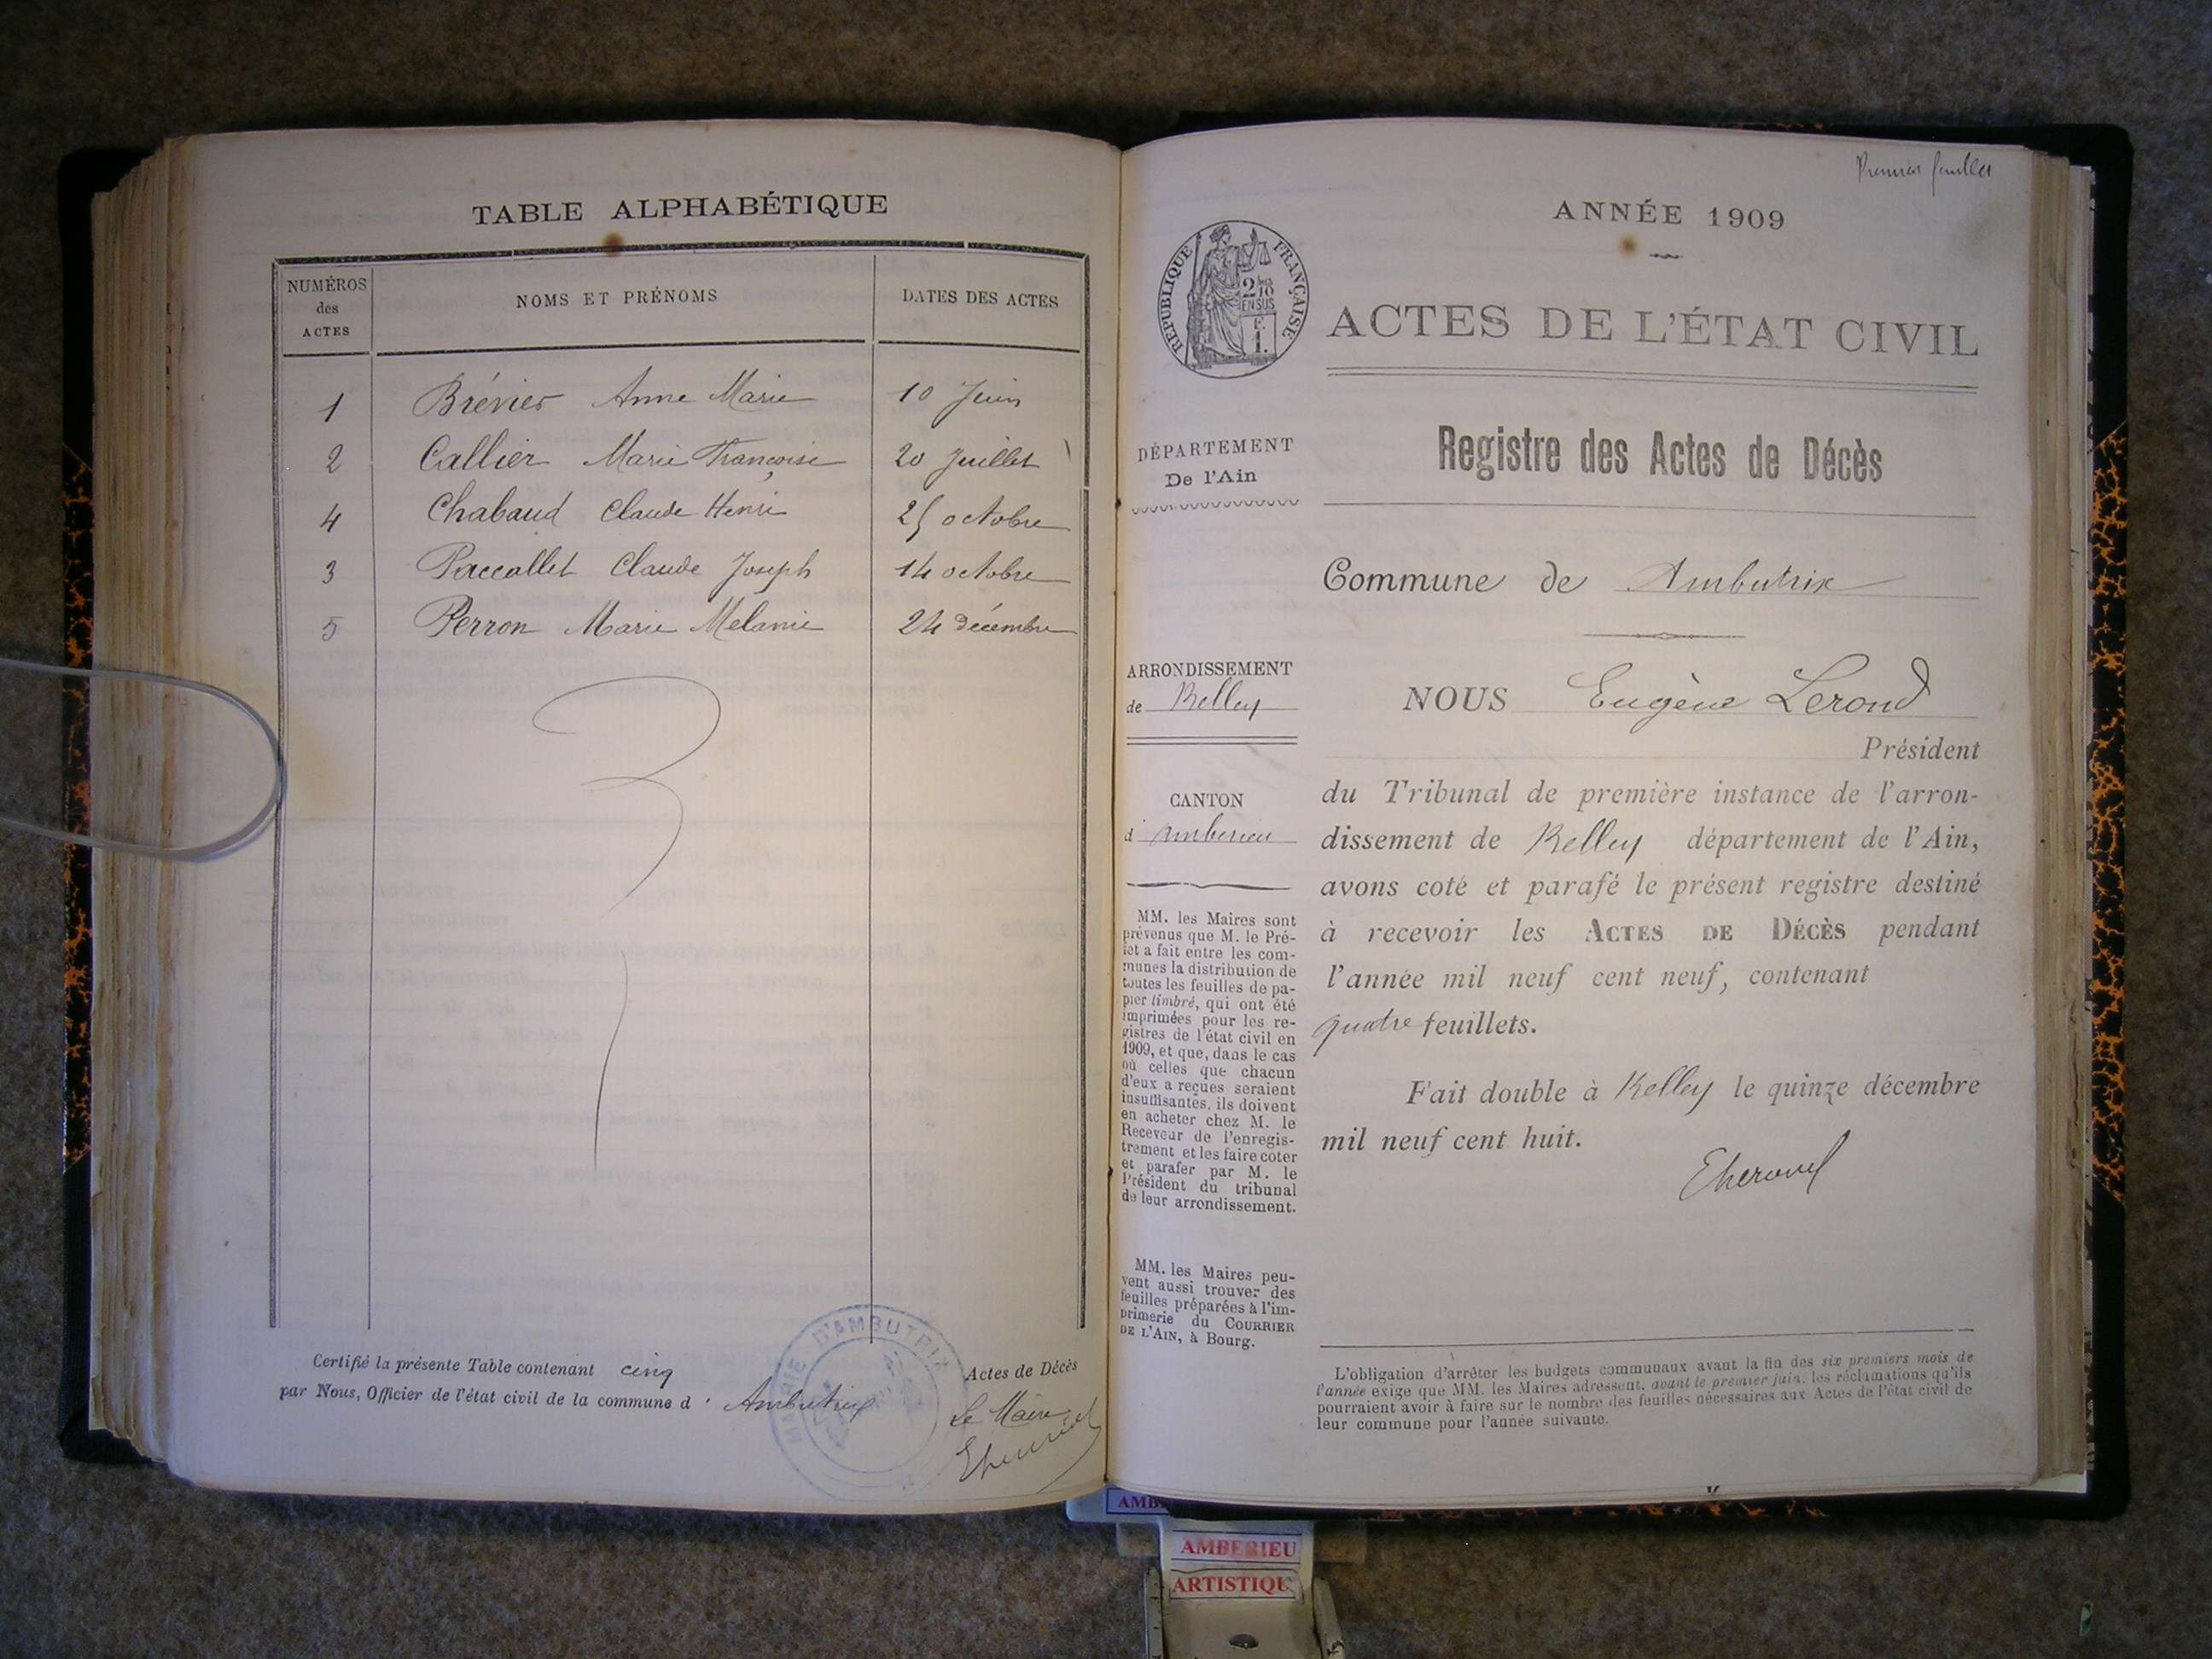 TABLE ALPHABÉTIQUE
NUMÉROS des ACTES NOMS ET PRÉNOMS DATES DES ACTES
1 Brévier Anne Marie 10 Juin
2 Callier Marie Françoise 20 Juillet
4 Chabaud Claude Henri 25 octobre
3 Paccallet Claude Joseph 14 octobre
5 Perron Marie Melanie 24 décembre
Certifié la présente Table contenant cinq Actes de Décès
par Nous, Officier de l'état civil de la commune d' Ambutrix
Le Maire
MAIRIE D'AMBUTRIX
Premier feuillet
ANNÉE 1909
RÉPUBLIQUE FRANÇAISE
2/10
EN SUS
F.
1.
ACTES DE L'ÉTAT CIVIL
Registre des Actes de Décès
DÉPARTEMENT
De l'Ain
Commune de Ambutrix
ARRONDISSEMENT
de Belley
CANTON
d' Amberieu
MM. les Maires sont
prévenus que M. le Pré-
fet a fait entre les com-
munes la distribution de
toutes les feuilles de pa-
pier timbré, qui ont été
imprimées pour les re-
gistres de l'état civil en
1909, et que, dans le cas
où celles que chacun
d'eux a reçues seraient
insuffisantes, ils doivent
en acheter chez M. le
Receveur de l'enregis-
trement et les faire coter
et parafer par M. le
Président du tribunal
de leur arrondissement.
MM. les Maires peu-
vent aussi trouver des
feuilles préparées à l'im-
primerie du COURRIER
DE L'AIN, à Bourg.
NOUS Eugène Lerond
Président
du Tribunal de première instance de l'arron-
dissement de Belley département de l'Ain,
avons coté et parafé le présent registre destiné
à recevoir les ACTES DE DÉCÈS pendant
l'année mil neuf cent neuf, contenant
quatre feuillets.
Fait double à Belley le quinze décembre
mil neuf cent huit.
L'obligation d'arrêter les budgets communaux avant la fin des six premiers mois de
l'année exige que MM. les Maires adressent, avant le premier juin, les réclamations qu'ils
pourraient avoir à faire sur le nombre des feuilles nécessaires aux Actes de l'état civil de
leur commune pour l'année suivante.
AMB
AMBERIEU
ARTISTIQU